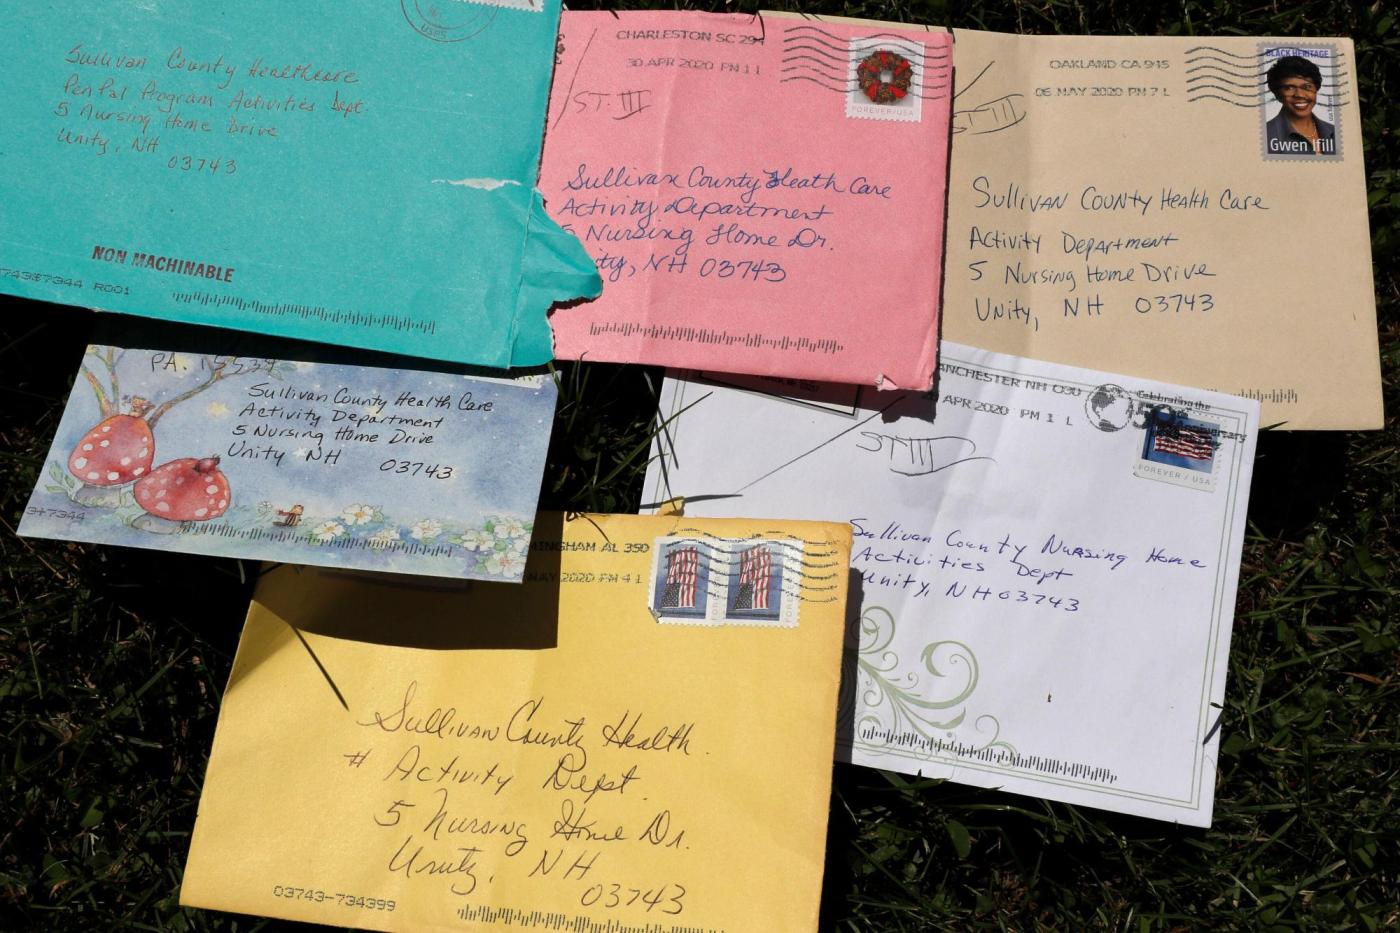 USPS
Sullivan County Healthcare
Pen Pal Program Activities Dept.
5 Nursing Home Drive
Unity, NH
03743
NON MACHINABLE
R001
CHARLESTON SC 294
30 APR 2020 PM 1 L
ST. III
FOREVER/USA
Sullivan County Heath Care
Activity Department
5 Nursing Home Dr.
ity, NH 03743
OAKLAND CA 945
06 MAY 2020 PM 7 L
BLACK HERITAGE
Gwen Ifill
Sullivan County Health Care
Activity Department
5 Nursing Home Drive
Unity, NH 03743
PA. 15537
Sullivan County Health Care
Activity Department
5 Nursing Home Drive
Unity NH 03743
3+7344
ANCHESTER NH 030
APR 2020 PM 1 L
Celebrating the
50th
Anniversary
FOREVER / USA
ST III
Sullivan County Nursing Home
Activities Dept
Unity, NH 03743
MINGHAM AL 350
MAY 2020 PM 4 L
Sullivan County Health
# Activity Dept.
5 Nursing Home Dr.
Unity, NH
03743
03743-734399